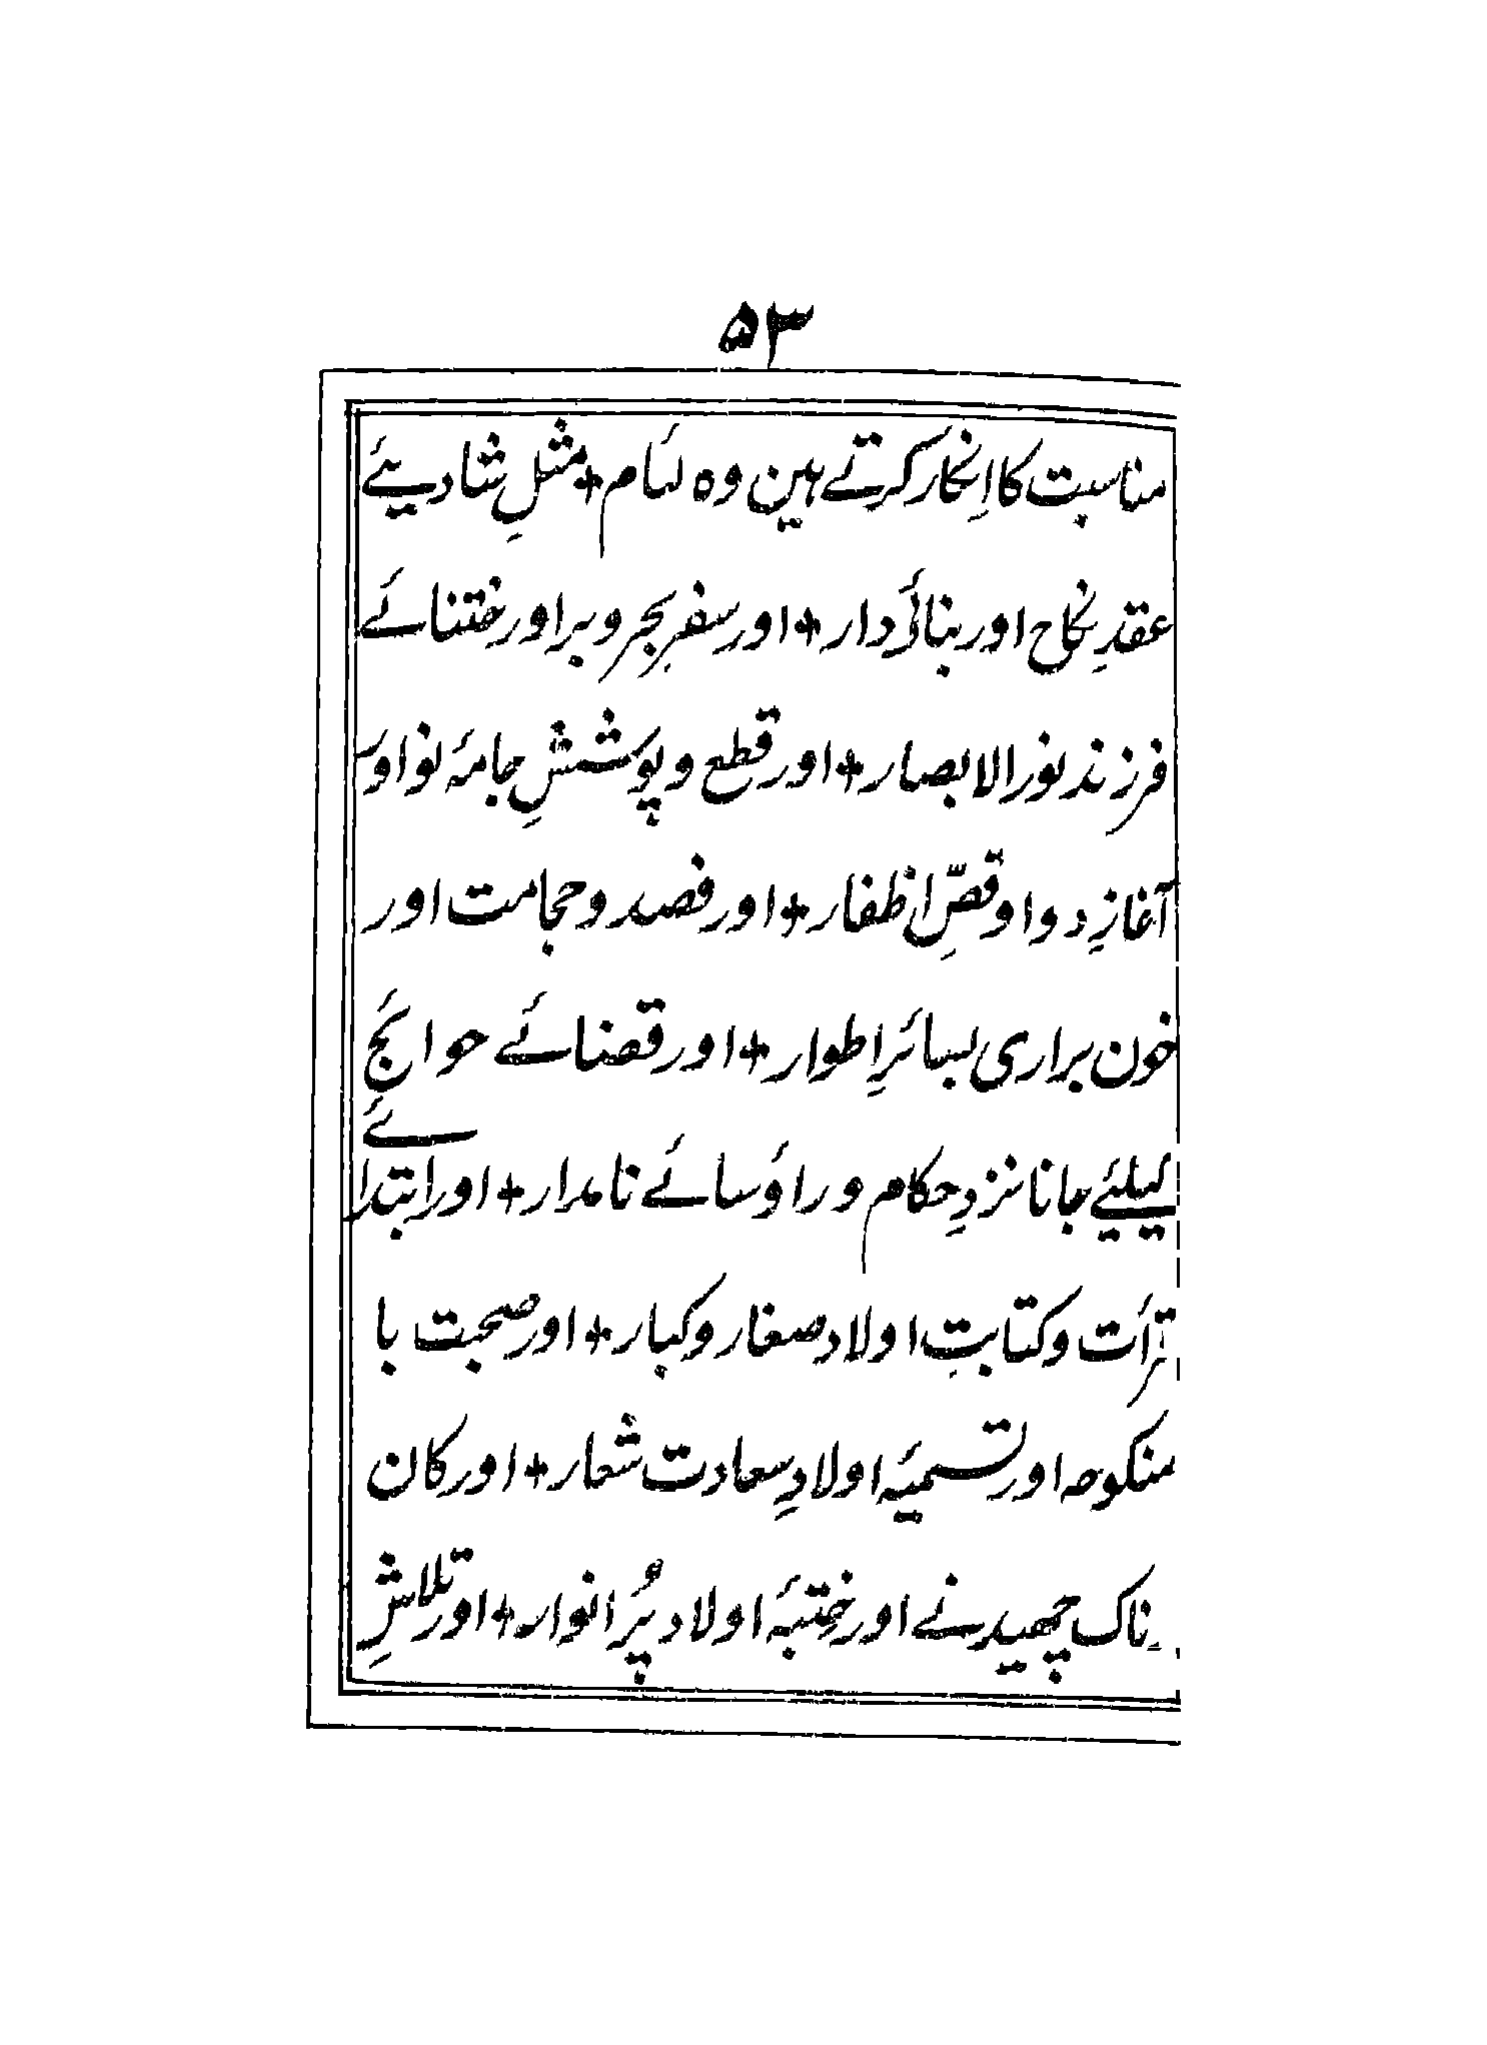 ۵۳
مناسبت کا اِنکار کرتے ہین وہ لئام + مثلِ شادیئے
عقدِ نکاح اور بنائے دار + اور سفرِ بحر و بر اور ختنائے
فرزند نور الابصار + اور قطع و پوششِ جامۂ نو اور
آغازِ دوا و قصِّ اظفار + اور فصد و حجامت اور
خون براری بسائرِ اطوار + اور قضائے حوائجِ
کیلئے جانا نزدِ حکام و راؤسائے نامدار + اور ابتدائے
قرأت و کتابتِ اولاد صغار و کبار + اور صحبت با
منکوحہ اور تسمیۂ اولادِ سعادت شعار + اور کان
ناک چھیدنے اور اولاد پُر انوار + اور تلاشِ